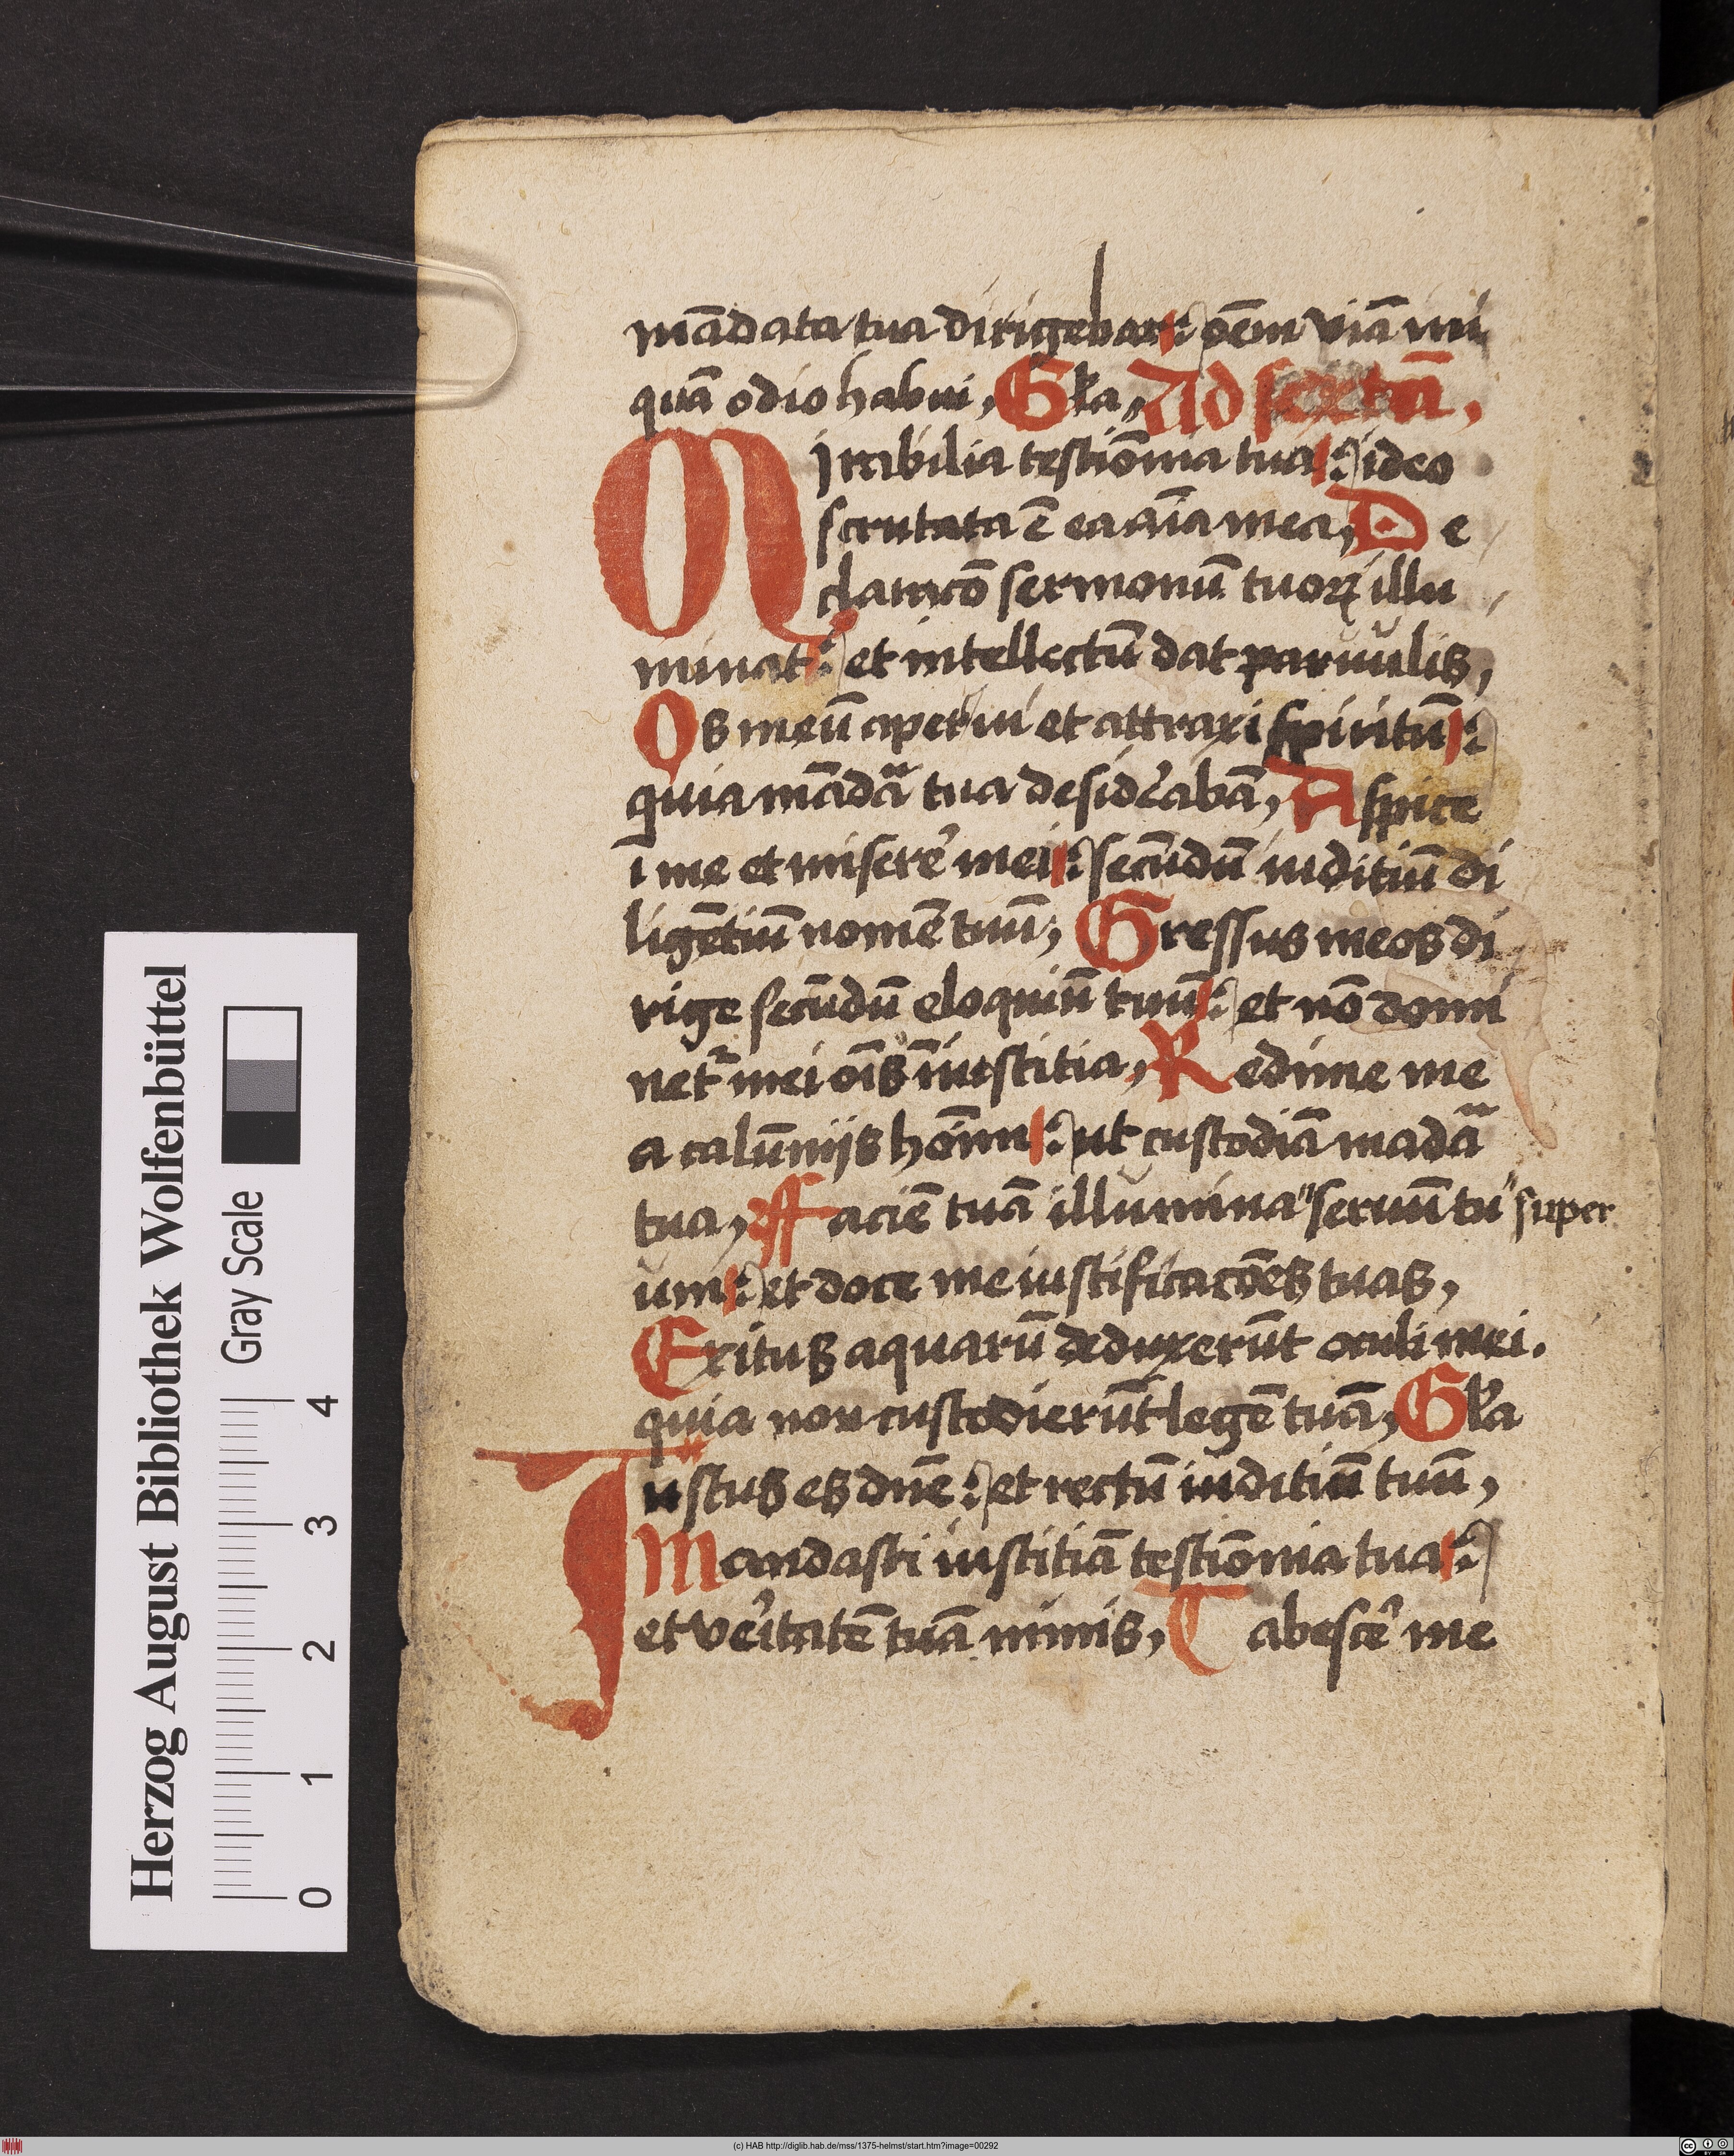 mādata tua dirigebar : oēm viā ini
quā odio habui, Gl'a, Ad sextā,
Mirabilia testiōnia tua : ideo
scrutata ē ea aīa mea, De
claracō sermonū tuoꝝ illu
minat : et intellectū dat paruulis,
Os meū aperui et attraxi spiritū :
quia mādā tua desid'abā, Aspice
ī me et miserē mei : secūdū iuditiū di
ligētiū nomē tuū, Gressus meos di
rige secūdū eloquiū tuū : et nō domi
net' mei oīs īiustitia, Redime me
a calūniis hōīnū : ut custodiā madā
tua, Faciē tuā illumina" seruū tu" super
um : et doce me iustificacōes tuas,
Exitus aquarū deduxerūt oculi mei.
quia non custodierūt legē tuā, Gl'a
Iustus es dn̄e : et rectū iuditiū tuū,
Mandasti iustitiā testiōnia tua :
et v'itatē tuā nimis, Tabescē me
Herzog August Bibliothek Wolfenbüttel
Gray Scale
0 1 2 3 4
(c) HAB http://diglib.hab.de/mss/1375-helmst/start.htm?image=00292